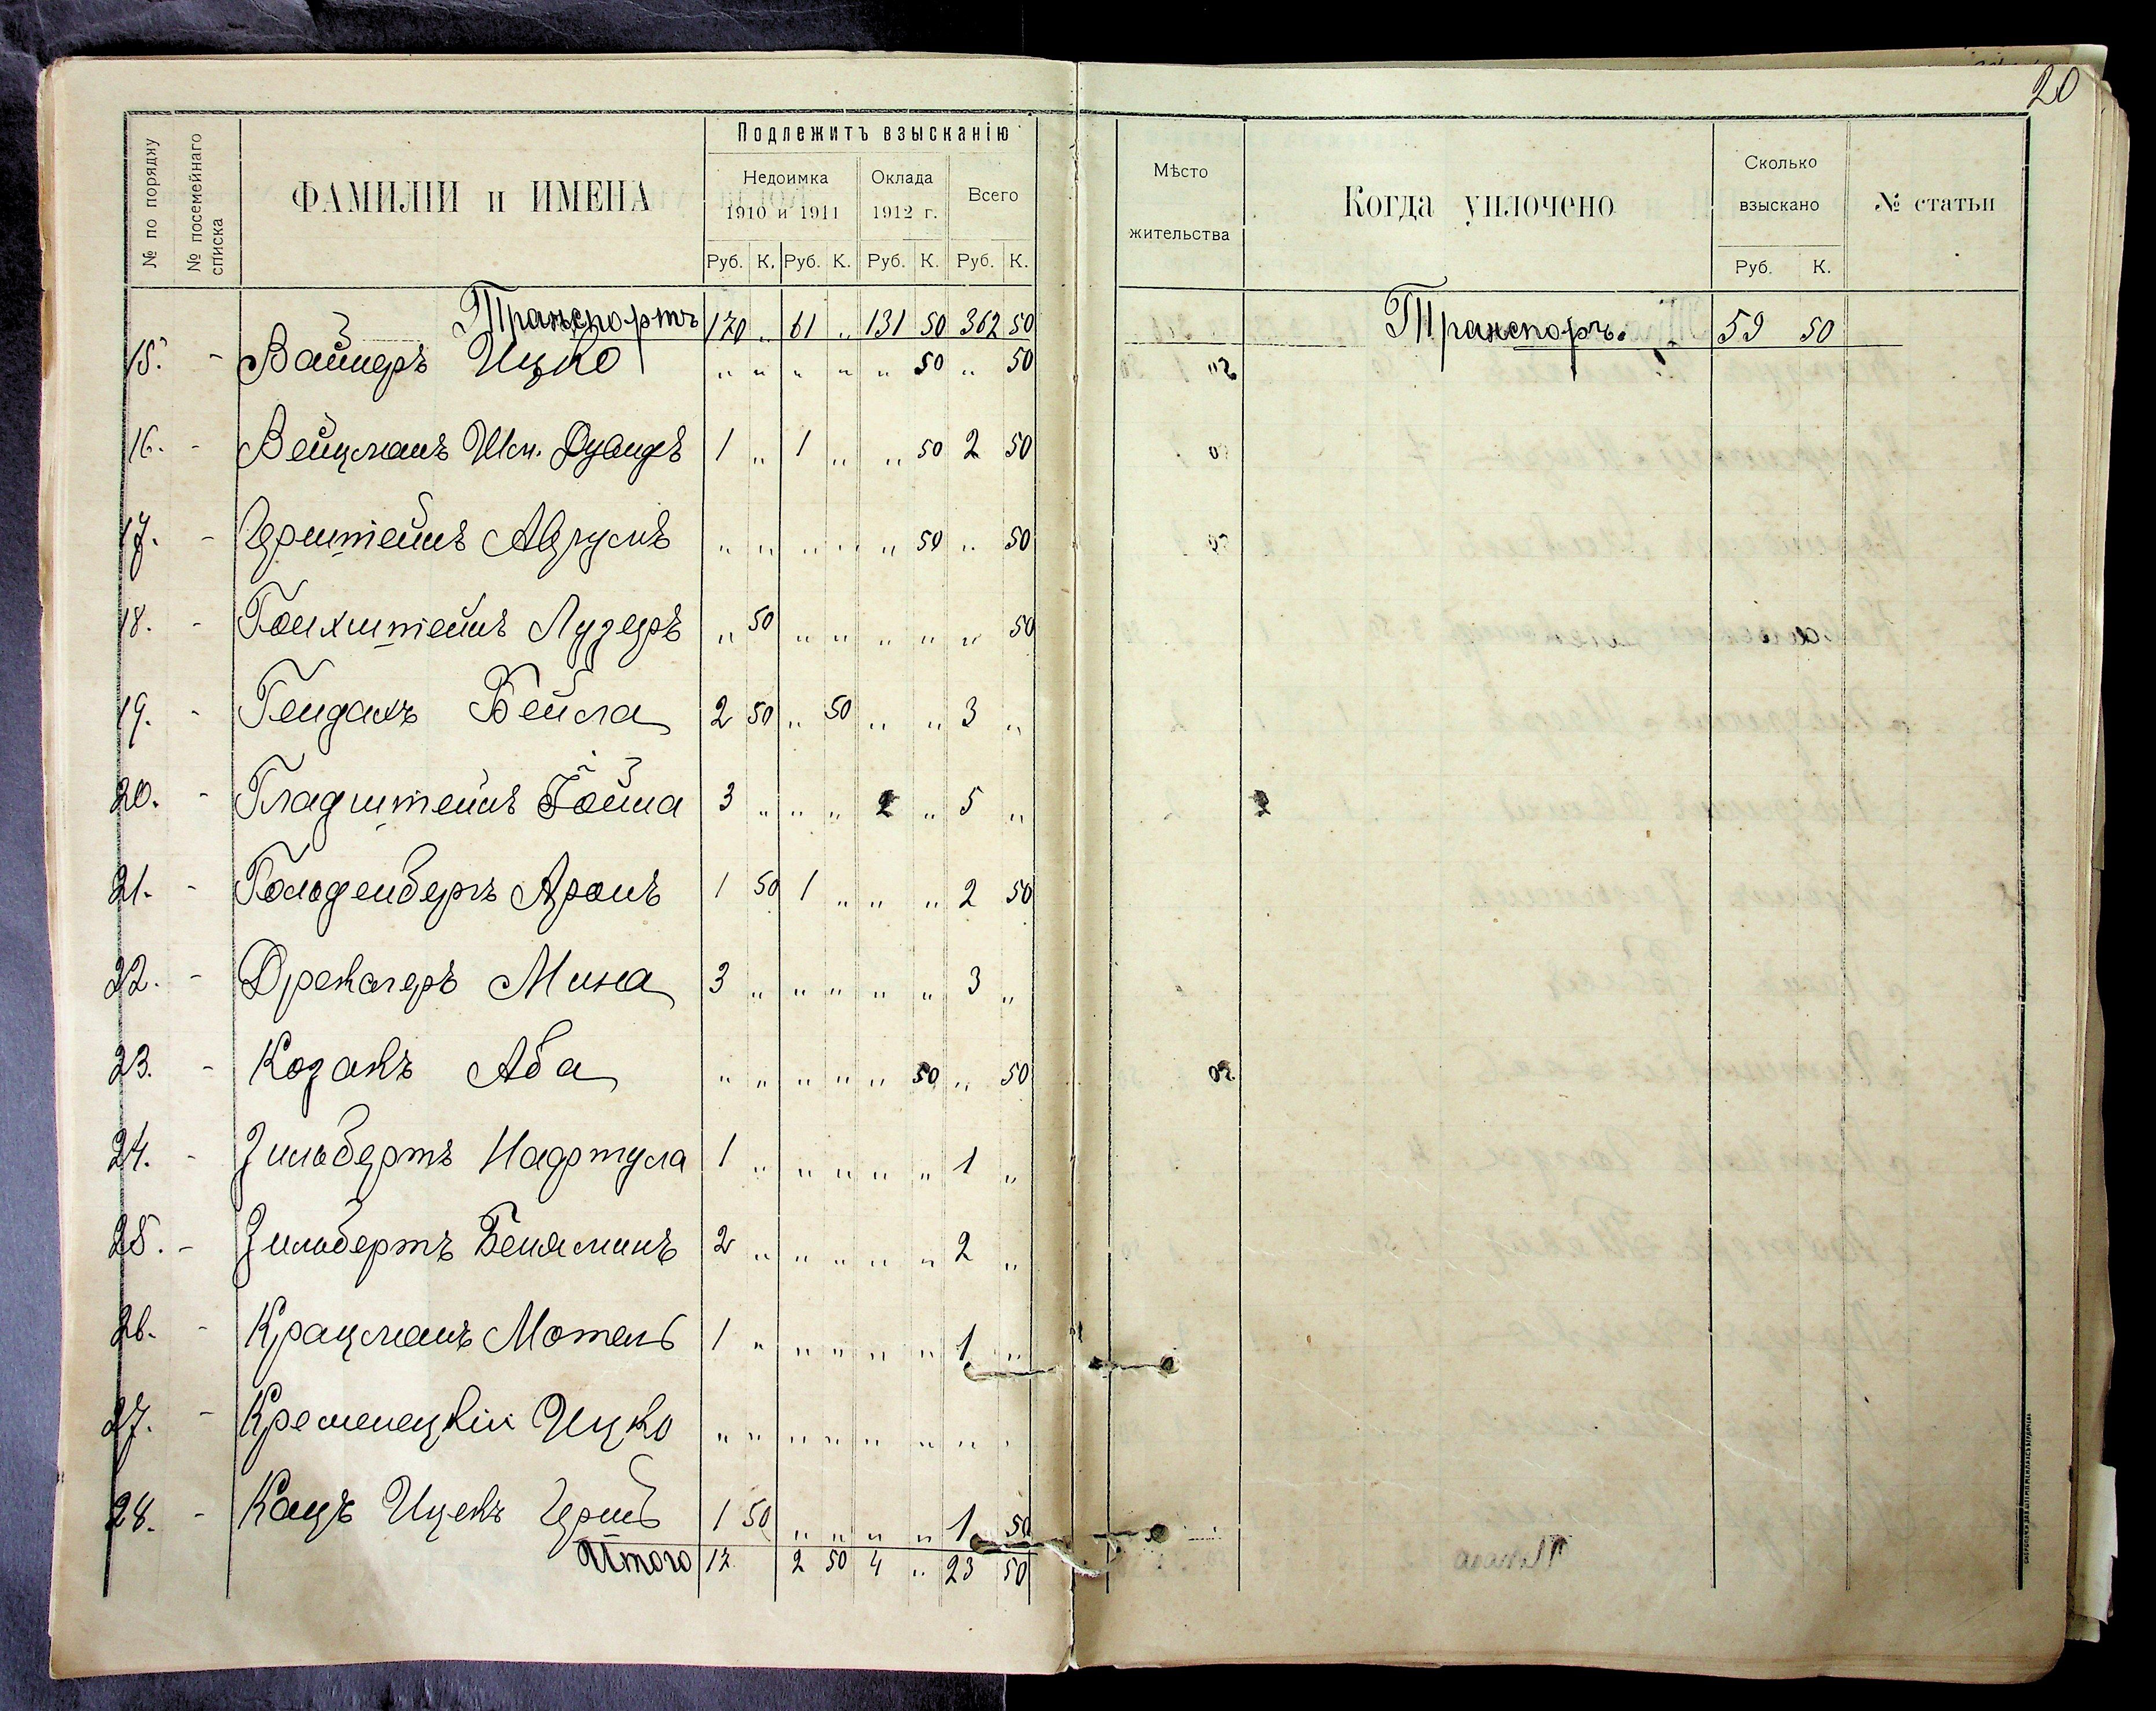 20
№ по порядку
№ посемейнаго списка
ФАМИЛІИ и ИМЕНА
Подлежитъ взысканію
Недоимка 1910 и 1911
Оклада 1912 г.
Всего
Руб. К. Руб. К. Руб. К. Руб. К.
Мѣсто жительства
Когда уплочено
Сколько взыскано
Руб. К.
№ статьи
Транспортъ 170 „ 61 „ 131 50 362 50
Транспор. 59 50
15. - Вайнеръ Ицко „ „ „ „ „ 50 „ 50
16. - Вейцманъ Шм. Дувидъ 1 „ 1 „ „ 50 2 50
17. - Герштейнъ Аврумъ „ „ „ „ „ 50 „ 50
18. - Гонхштейнъ Лузеръ „ 50 „ „ „ „ „ 50
19. - Гендахъ Бейла 2 50 „ 50 „ „ 3 „
20. - Гладштейнъ Іойна 3 „ „ „ 2 „ 5 „
21. - Гольденбергъ Аронъ 1 50 1 „ „ „ 2 50
22. - Дрекслеръ Мина 3 „ „ „ „ „ 3 „
23. - Козакъ Аба „ „ „ „ „ 50 „ 50
24. - Зильбертъ Нафтула 1 „ „ „ „ „ 1 „
25. - Зильбертъ Беняминъ 2 „ „ „ „ „ 2 „
26. - Крацманъ Мотель 1 „ „ „ „ „ 1 „
27. - Кременецкій Ицко „ „ „ „ „ „ „ „
28. - Кацъ Ицекъ Герш 1 50 „ „ „ „ 1 50
Итого 17 2 50 4 „ 23 50